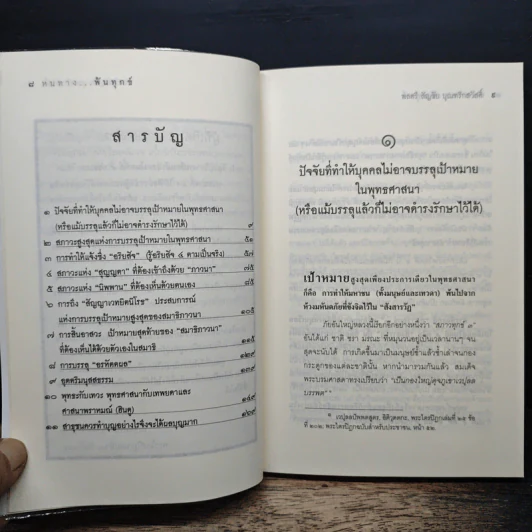 ๘ หนทาง....พ้นทุกข์
สารบัญ
๑ ปัจจัยที่ทำให้บุคคลไม่อาจบรรลุเป้าหมายในพุทธศาสนา
(หรือแม้บรรลุแล้วก็ไม่อาจดำรงรักษาไว้ได้) ๙
๒ สภาวะสูงสุดแห่งการบรรลุเป้าหมายในพุทธศาสนา ๕๑
๓ การทำให้แจ้งซึ่ง “อริยสัจ” (รู้อริยสัจ ๔ ตามเป็นจริง) ๕๗
๔ สภาวะแห่ง “สุญญตา” ที่ต้องเข้าถึงด้วย “ภาวนา” ๗๕
๕ สภาวะแห่ง “นิพพาน” ที่ต้องเห็นด้วยตนเอง ๘๕
๖ การถึง “สัญญาเวทยิตนิโรธ” ประสบการณ์
แห่งการบรรลุเป้าหมายสูงสุดของสมาธิภาวนา ๑๐๕
๗ การสิ้นอาสวะ เป้าหมายสุดท้ายของ “สมาธิภาวนา”
ที่ต้องเห็นได้ด้วยตัวเองในสมาธิ ๑๑๕
๘ การบรรลุ “อรหัตตผล” ๑๒๙
๙ อุตตริมนุสสธรรม ๑๓๕
๑๐ พุทธะกับเทวะ พุทธศาสนากับเทพเจดาและ
ศาสนาพราหมณ์ (ฮินดู) ๑๔๙
๑๑ สาธุชนควรทำบุญอย่างไรจึงจะได้ผลบุญมาก ๑๖๙
๑
ปัจจัยที่ทำให้บุคคลไม่อาจบรรลุเป้าหมาย
ในพุทธศาสนา
(หรือแม้บรรลุแล้วก็ไม่อาจดำรงรักษาไว้ได้)
เป้าหมายสูงสุดเพียงประการเดียวในพุทธศาสนา
ก็คือ การทำให้มหาชน (ทั้งมนุษย์และเทวดา) พ้นไปจาก
ห้วงมหันตภัยที่ขังจิตไว้ใน “สังสารวัฏ”
ภัยอันใหญ่หลวงนี้เรียกอีกอย่างหนึ่งว่า “สภาวทุกข์ ๓”
อันได้แก่ ชาติ ชรา มรณะ ที่หมุนวนอยู่เป็นเวลานานๆ จน
สุดจะนับได้ การเกิดขึ้นมาเป็นมนุษย์ซ้ำแล้วซ้ำเล่าจนกอง
กระดูกของแต่ละชาตินั้น หากนำมารวมกันแล้ว สมเด็จ
พระบรมศาสดาทรงเปรียบว่า “เป็นกองใหญ่ดุจภูเขาเวปุลล
บรรพต”
เวปุลลปัพพตสูตร, อิติวุตตกะ, พระไตรปิฎกเล่มที่ ๒๕ ข้อ
ที่ ๒๐๒, พระไตรปิฎกฉบับสำหรับประชาชน, หน้า